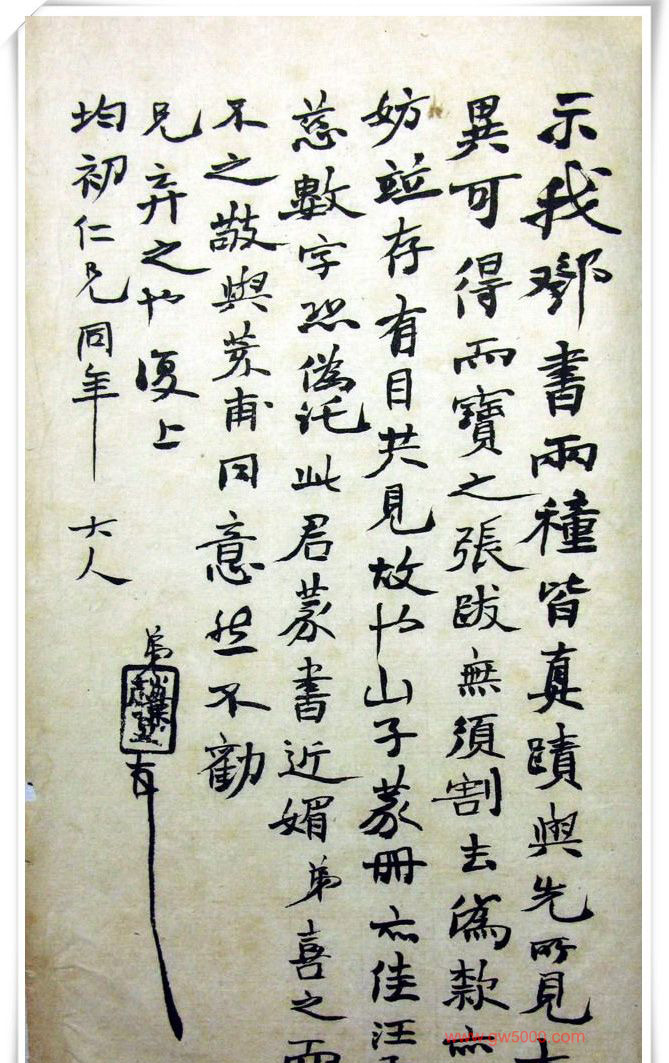 示我鄧書兩種皆真蹟與先所見
異可得兩寶之張跋無須割去偽款無
妨竝存有目共見故也山子篆冊亦佳汪
慈數字恐偽託此君篆書近媚弟喜之而
不之敬與荄甫同意然不勸
兄弃之也復上
均初仁兄同年 大人
弟